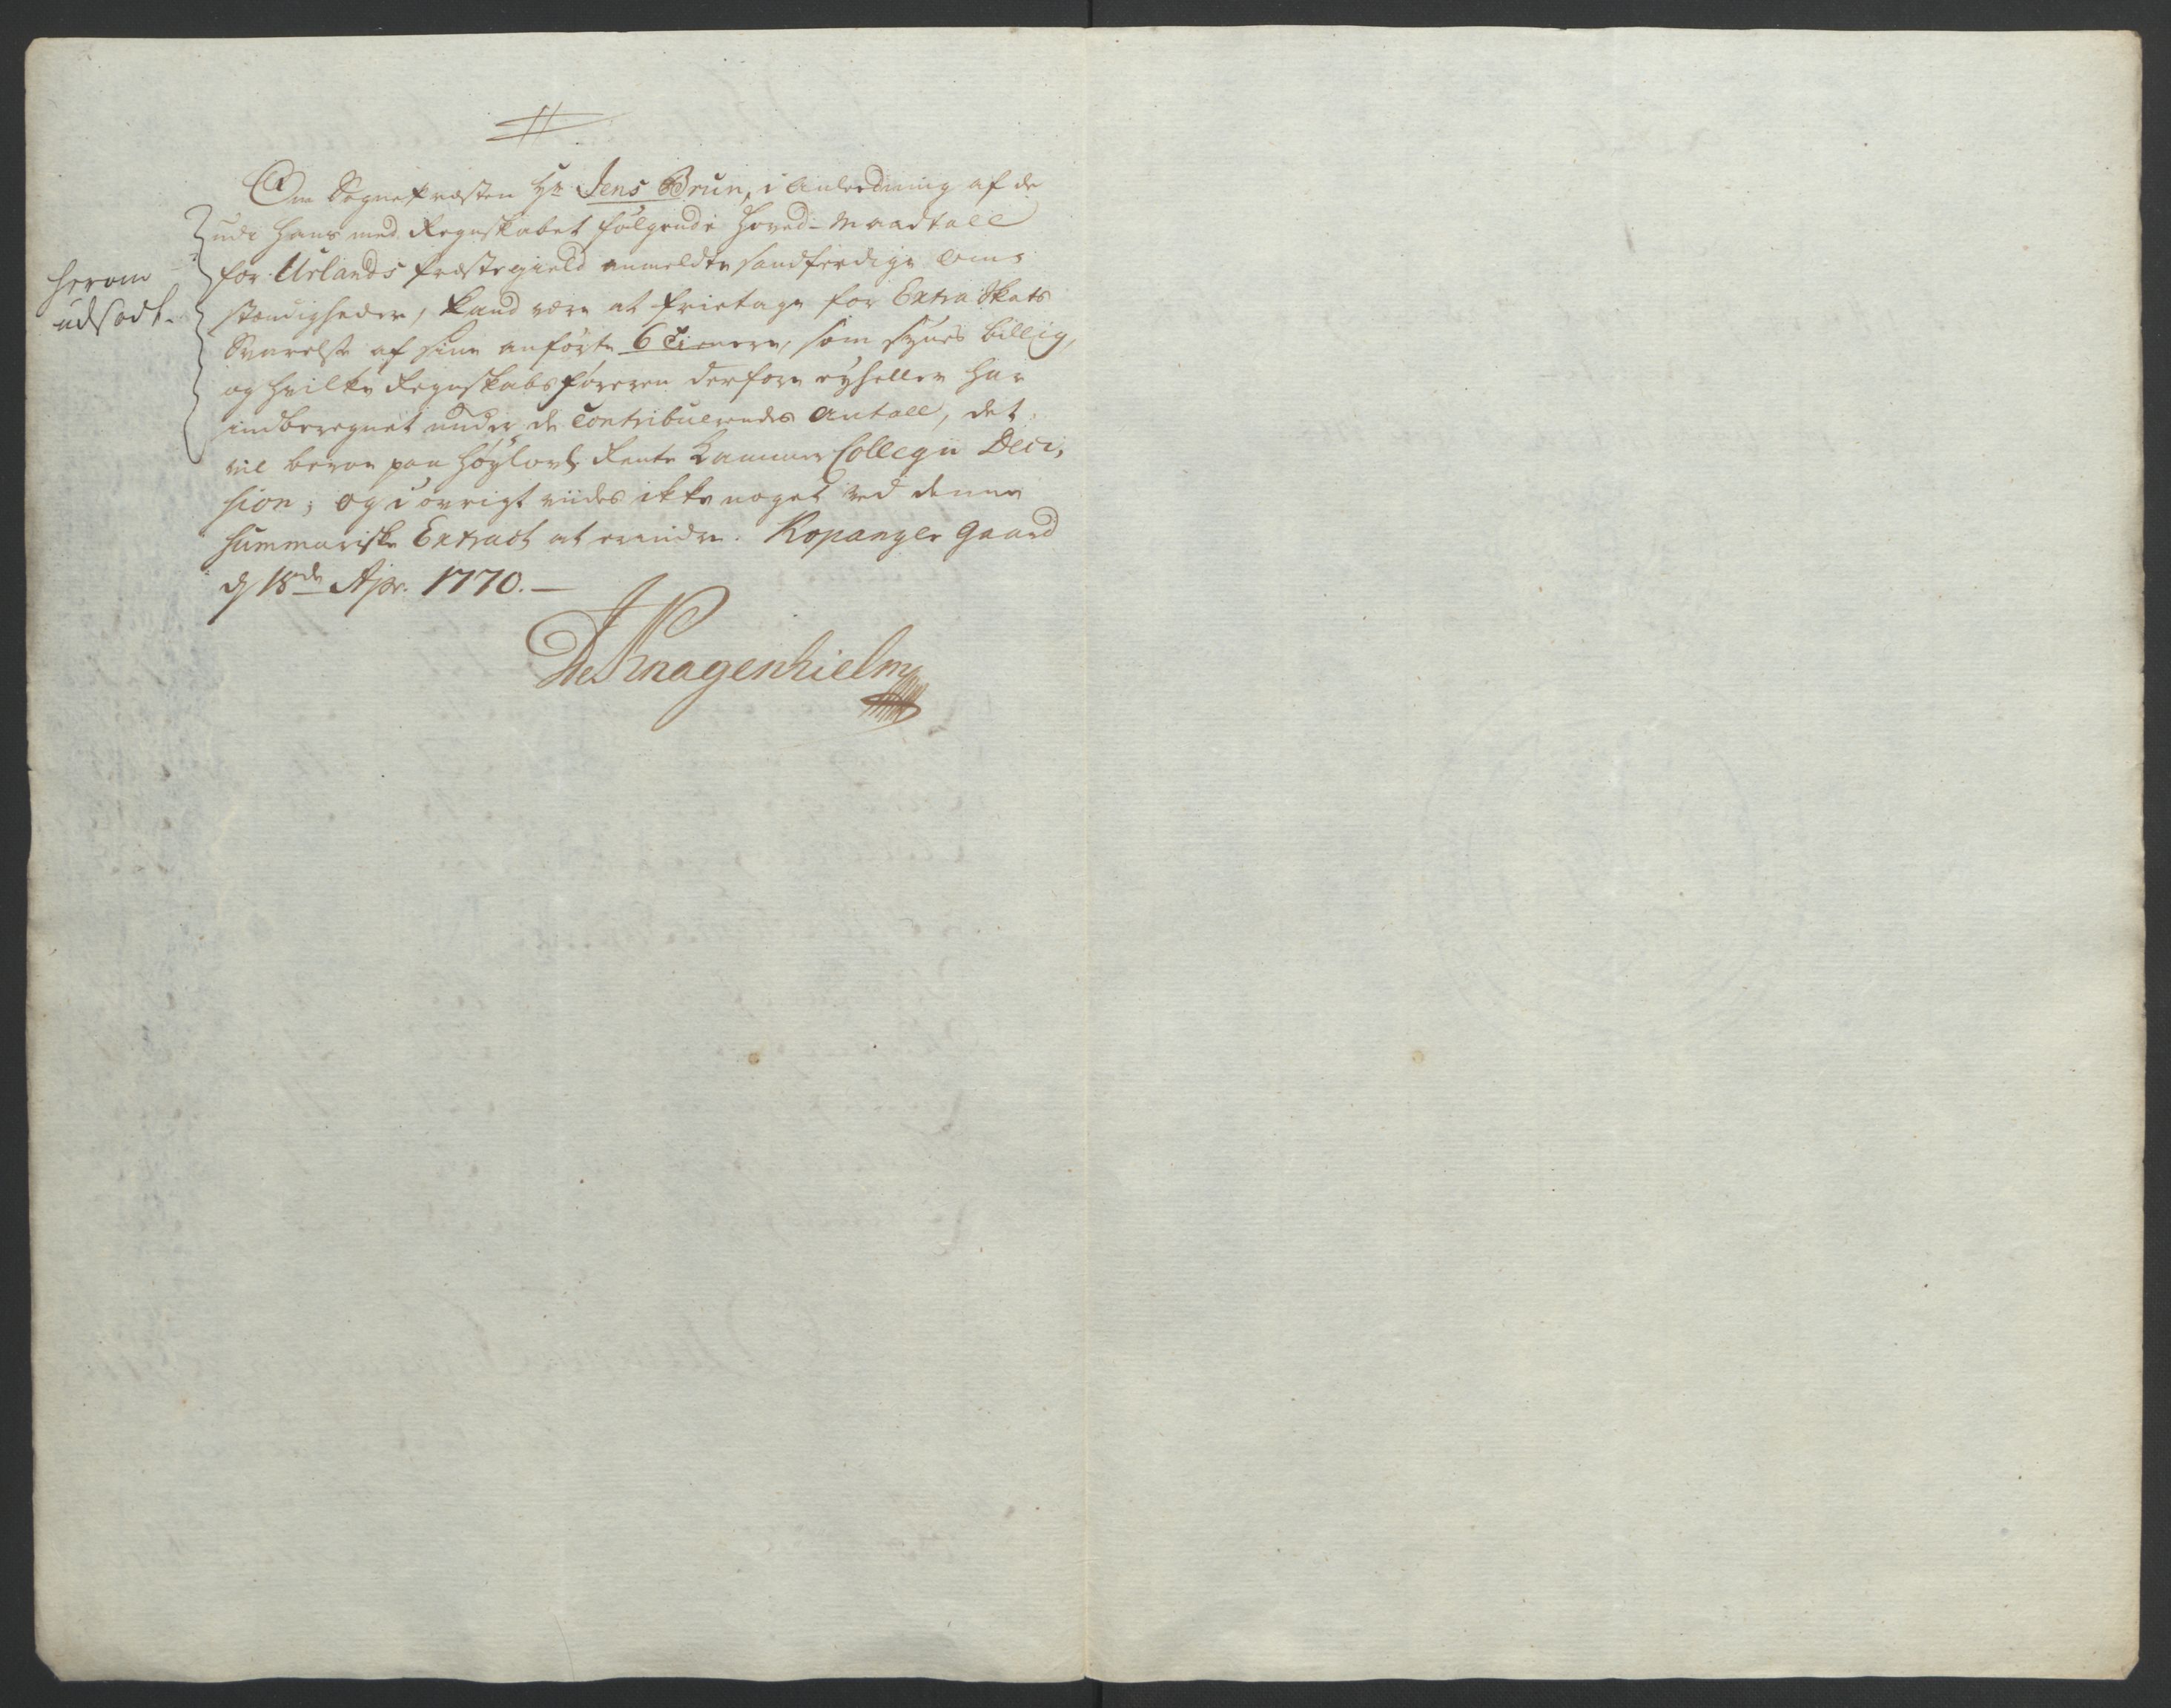 Om Sognepræsten Hr Jens Brun, i Anleedning af de
udi hans med Regnskabet følgende Hoved-Mandtall
for Urlands Præstegield anmeldte sandferdige Om-
stændigheder, kand være at frietage for Extra Skats
herom
udsadt.
Svarelse af sine anførte 6 Tienere, som synes billig,
og hvilke Regnskabsføreren derfore eyheller har
indberegnet under de Contribuerendes Antall, det
vil beroe paa Høylovl. Rente Kammer Collegii Deci-
sion; og i øvrigt viides ikke noget ved denne
Summariske Extract at erindre. Kopanger Gaard
d 18de Apr. 1770.
De Knagenhielm